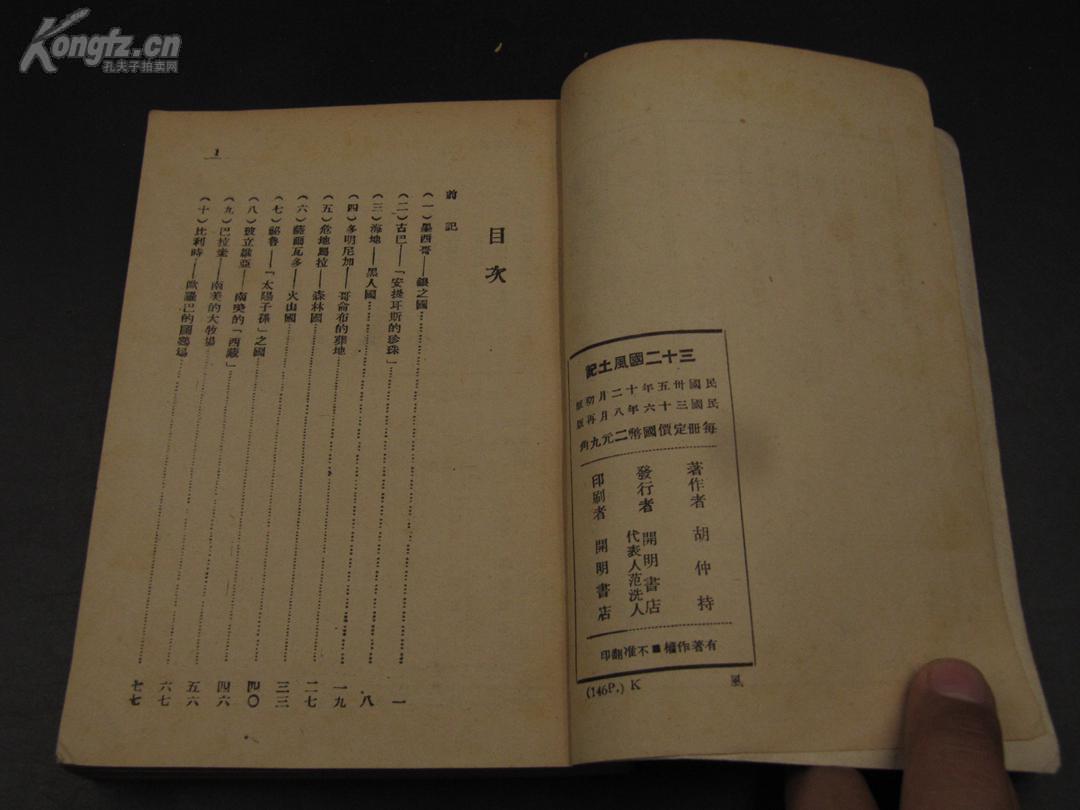 Kongfz.cn
孔夫子拍卖网
三十二國風土記
民國卅五年十二月初版
民國三十六年八月再版
每冊定價國幣二元九角
著作者 胡仲持
發行者 開明書店
代表人范洗人
印刷者 開明書店
有著作權■不准翻印
(146P.) K 風
目次
前記
(一)墨西哥——銀之國……一
(二)古巴——「安提耳斯的珍珠」……八
(三)海地——黑人國……一九
(四)多明尼加——哥侖布的葬地……二七
(五)危地馬拉——森林國……三三
(六)薩爾瓦多——火山國……四〇
(七)祕魯——「太陽子孫」之國……四六
(八)玻立維亞——南美的「西藏」……五六
(九)巴拉圭——南美的大牧場……六七
(十)比利時——歐羅巴的鬭雞場……七七
1